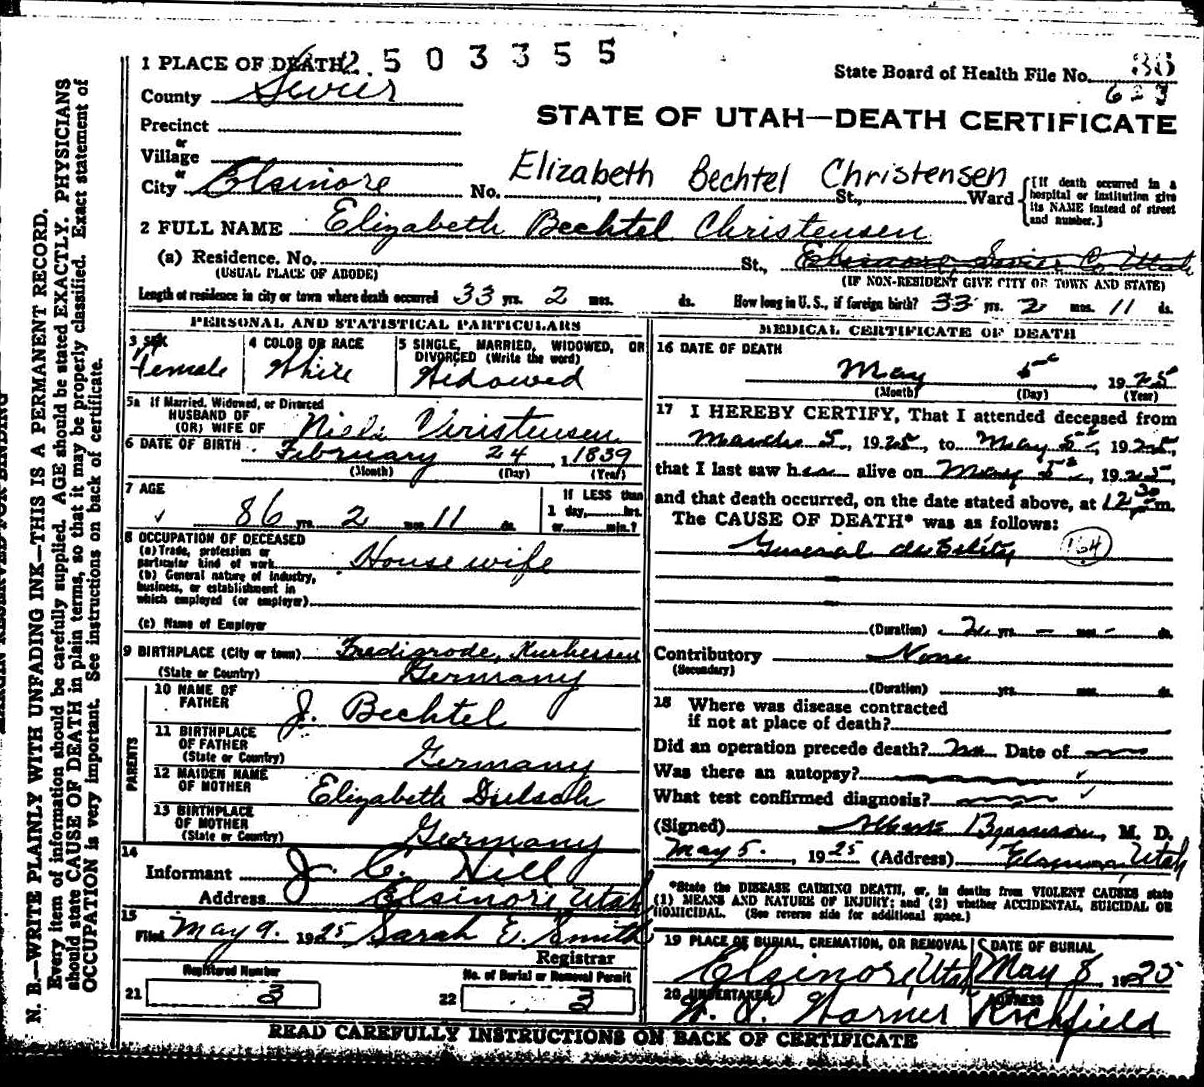 2 5 0 3 3 5 5
1 PLACE OF DEATH
State Board of Health File No. 36
623
County Sevier
STATE OF UTAH—DEATH CERTIFICATE
Precinct
or
Village
or
City Elsinore No. St., Ward
Elizabeth Bechtel Christensen
[If death occurred in a hospital or institution give its NAME instead of street and number.]
2 FULL NAME Elizabeth Bechtel Christensen
(a) Residence. No. St., Elsinore, Sevier Co, Utah
(USUAL PLACE OF ABODE) (IF NON-RESIDENT GIVE CITY OR TOWN AND STATE)
Length of residence in city or town where death occurred 33 yrs. 2 mos. ds. How long in U.S., if foreign birth? 33 yrs. 2 mos. 11 ds.
PERSONAL AND STATISTICAL PARTICULARS
3 SEX
Female
4 COLOR OR RACE
White
5 SINGLE, MARRIED, WIDOWED, OR
DIVORCED (Write the word)
Widowed
5a If Married, Widowed, or Divorced
HUSBAND OF
(OR) WIFE OF Niels Christensen
6 DATE OF BIRTH February 24, 1839
(Month) (Day) (Year)
7 AGE
86 yrs. 2 mos. 11 ds.
If LESS than
1 day, hrs.
or min.?
8 OCCUPATION OF DECEASED
(a) Trade, profession or
particular kind of work House wife
(b) General nature of industry,
business, or establishment in
which employed (or employer)
(c) Name of Employer
9 BIRTHPLACE (City or town) Kurhessen
(State or Country) Germany
PARENTS
10 NAME OF
FATHER J. Bechtel
11 BIRTHPLACE
OF FATHER
(State or Country) Germany
12 MAIDEN NAME
OF MOTHER Elizabeth
13 BIRTHPLACE
OF MOTHER
(State or Country) Germany
14
Informant J. C. Hill
Address Elsinore Utah
15
Filed May 9. 1925 Sarah E. Smith
Registrar
Registered Number
21 3
No. of Burial or Removal Permit
22 3
MEDICAL CERTIFICATE OF DEATH
16 DATE OF DEATH
May 5, 1925
(Month) (Day) (Year)
17 I HEREBY CERTIFY, That I attended deceased from
March 5, 1925, to May 5, 1925,
that I last saw her alive on May 5, 1925
and that death occurred, on the date stated above, at 12 30 pm.
The CAUSE OF DEATH* was as follows:
General debility 164
(Duration) 2 yrs. - mos. - ds.
Contributory None
(Secondary)
(Duration) yrs. mos. ds.
18 Where was disease contracted
if not at place of death?
Did an operation precede death? No Date of
Was there an autopsy?
What test confirmed diagnosis?
(Signed) M. D.
May 5. , 1925 (Address) Elsinore, Utah
*State the DISEASE CAUSING DEATH, or, in deaths from VIOLENT CAUSES state
(1) MEANS AND NATURE OF INJURY; and (2) whether ACCIDENTAL, SUICIDAL OR
HOMICIDAL. (See reverse side for additional space.)
19 PLACE OF BURIAL, CREMATION, OR REMOVAL
Elsinore, Utah
DATE OF BURIAL
May 8 1925
20 UNDERTAKER
Warner
ADDRESS
Richfield
READ CAREFULLY INSTRUCTIONS ON BACK OF CERTIFICATE
N. B.—WRITE PLAINLY WITH UNFADING INK—THIS IS A PERMANENT RECORD.
Every item of information should be carefully supplied. AGE should be stated EXACTLY. PHYSICIANS
should state CAUSE OF DEATH in plain terms, so that it may be properly classified. Exact statement of
OCCUPATION is very important. See instructions on back of certificate.